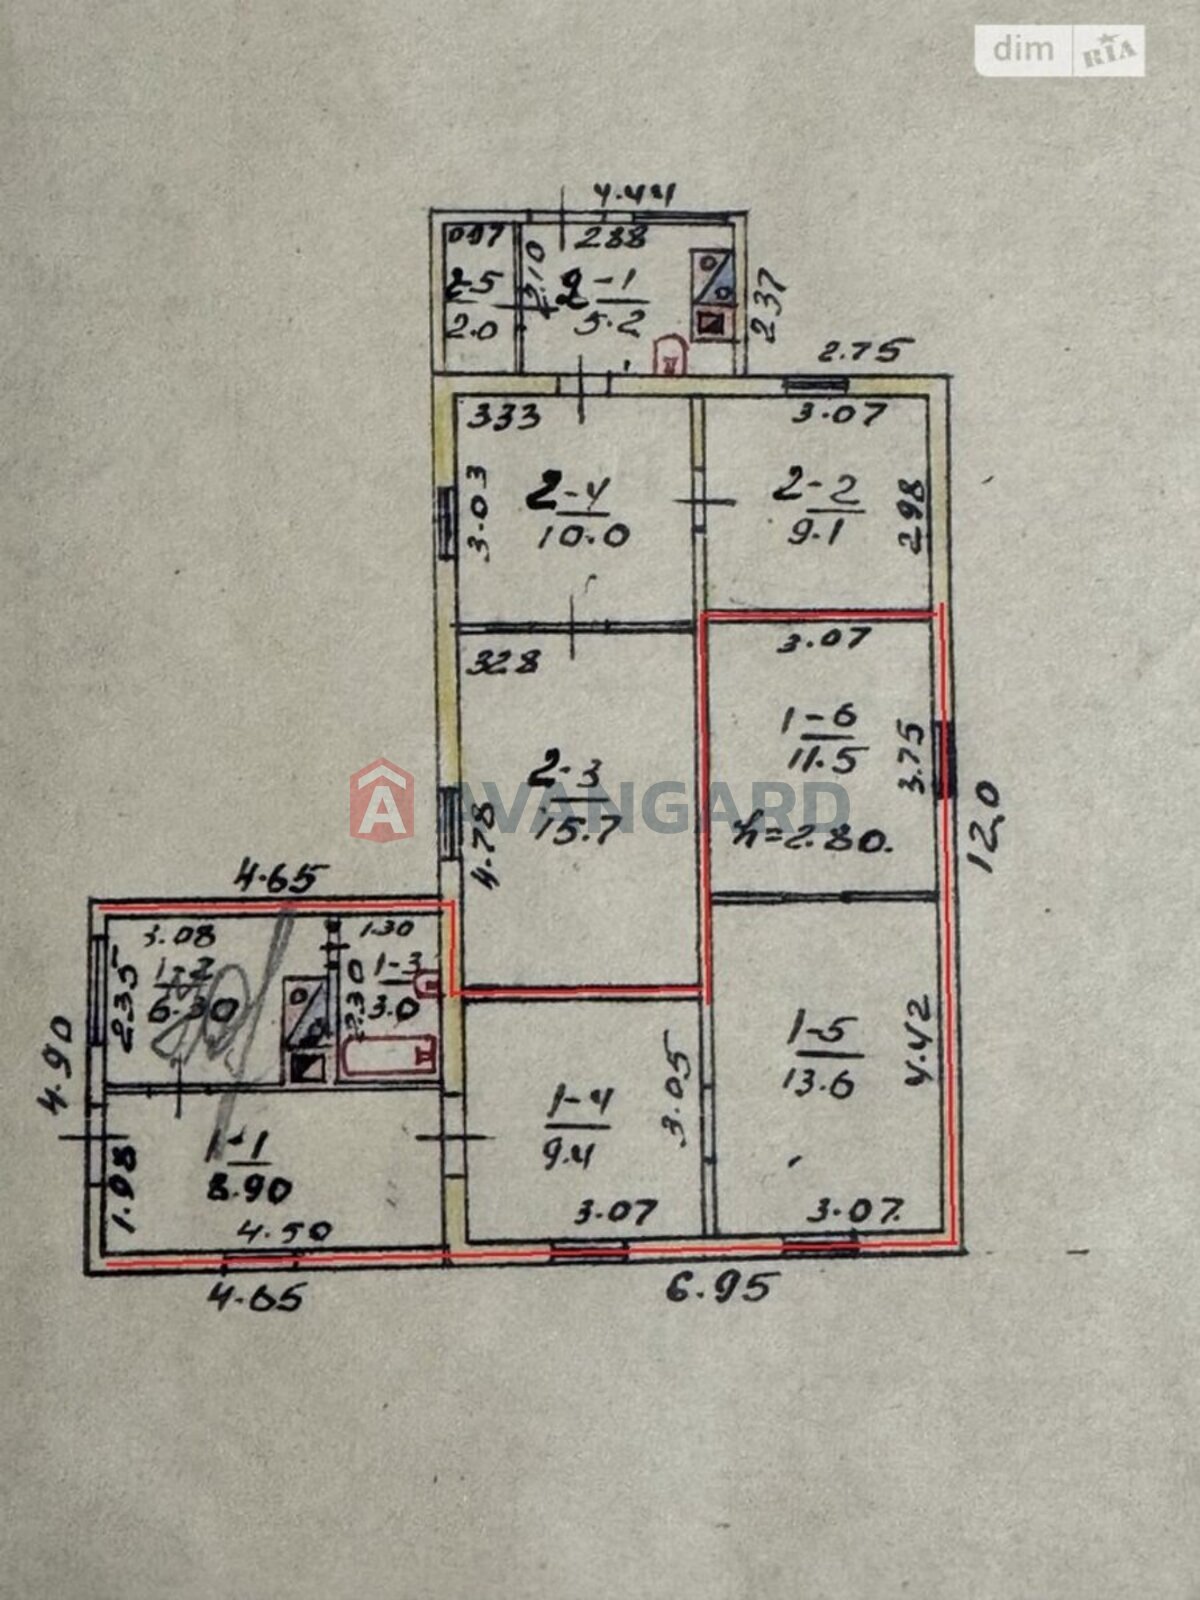 dim RIA
4.44
0.97
2.88
2-5
2.0
2.10
2-1
5.2
2.37
2.75
3.33
3.07
3.03
2-4
10.0
2-2
9.1
2.98
3.28
3.07
1-6
11.5
3.75
2-3
15.7
AVANGARD
h=2.80.
4.78
12,0
4.65
3.08
1.30
1-2
6.30
2.35
1-3
3.0
2.30
4.90
1-5
13.6
4.42
1-4
9.4
3.05
1-1
8.90
1.98
3.07
3.07.
4.50
4.65
6.95